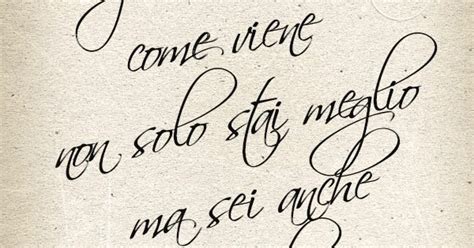 come viene
non solo stai meglio
ma sei anche